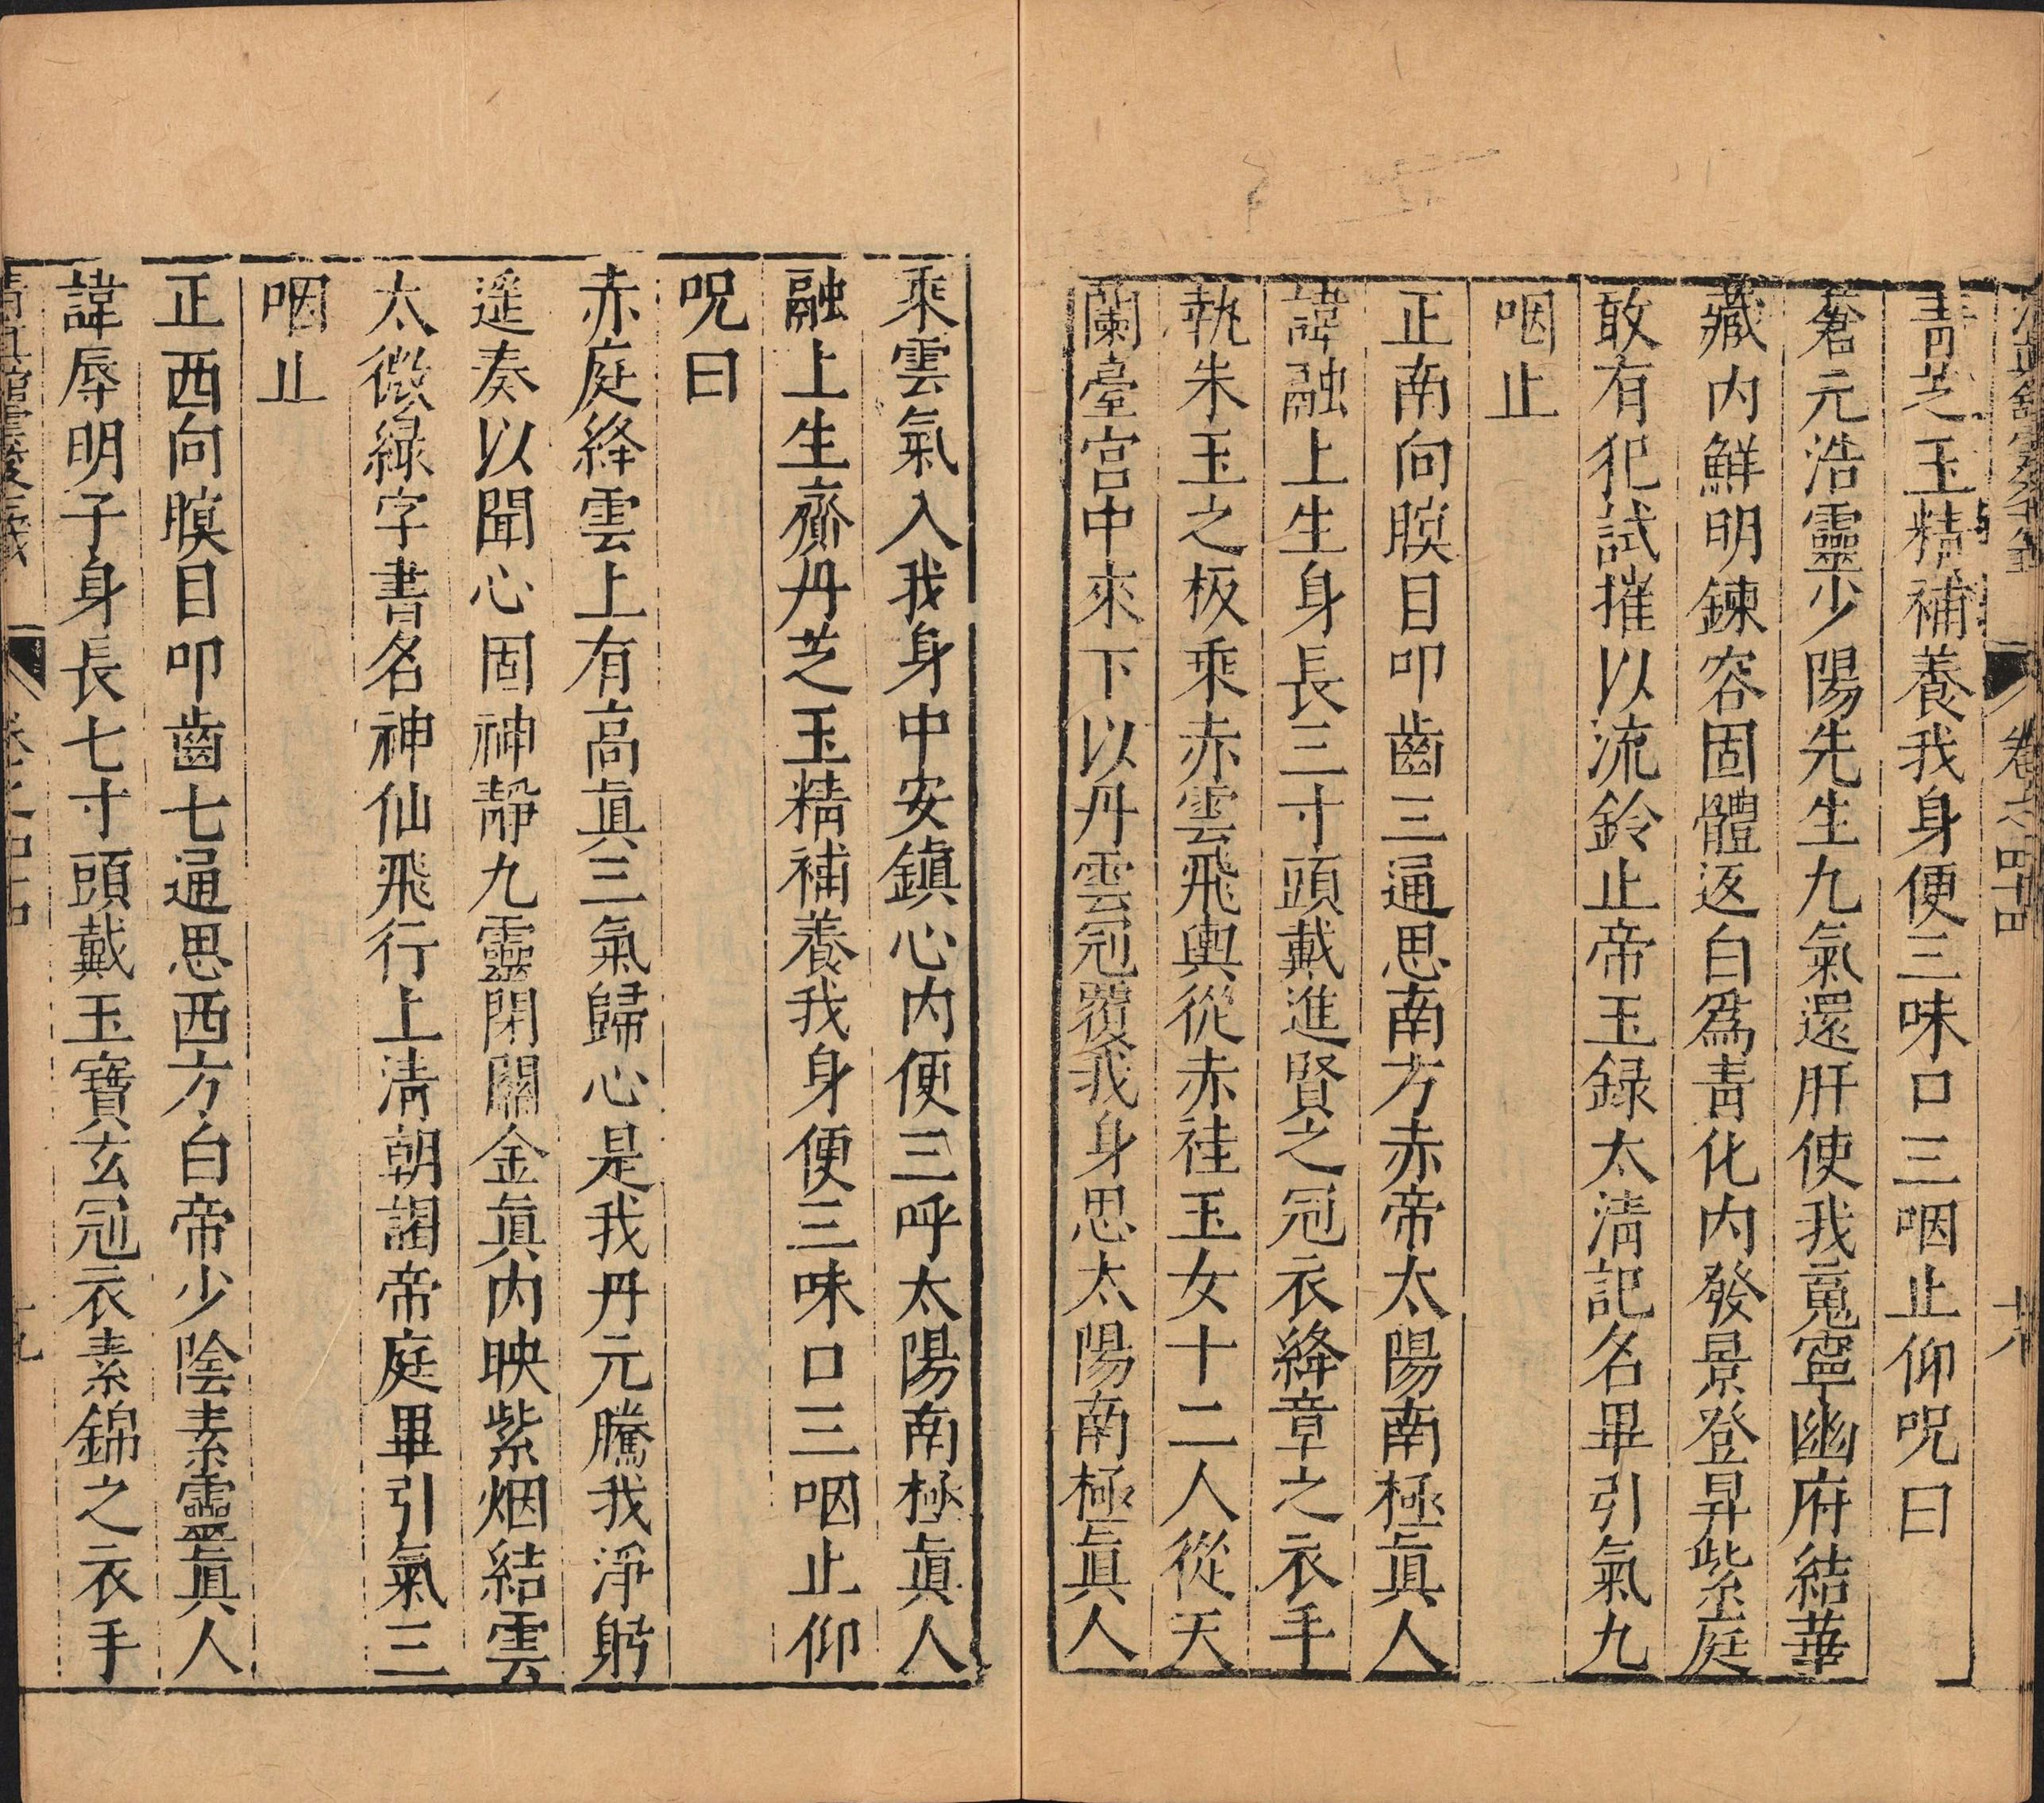 卷之四十四
十八
青芝玉精補養我身便三味口三咽止仰呪曰
蒼元浩靈少陽先生九氣還肝使我䰟寧幽府結華
藏内鮮明鍊容固體返白爲青化内發景登昇紫庭
敢有犯試摧以流鈴止帝玉録太清記名畢引氣九
咽止
正南向瞑目叩齒三通思南方赤帝太陽南極眞人
諱融上生身長三寸頭戴進賢之冠衣絳章之衣手
執朱玉之板乘赤雲飛輿從赤袿玉女十二人從天
蘭臺宫中來下以丹雲冠覆我身思太陽南極眞人
乘雲氣入我身中安鎭心内便三呼太陽南極眞人
融上生齎丹芝玉精補養我身便三味口三咽止仰
呪曰
赤庭絳雲上有高眞三氣歸心是我丹元騰我淨躬
遥奏以聞心固神靜九靈閉關金眞内映紫烟結雲
太微緑字書名神仙飛行上清朝謁帝庭畢引氣三
咽止
正西向瞑目叩齒七通思西方白帝少陰素靈眞人
諱辱明子身長七寸頭戴玉寶玄冠衣素錦之衣手